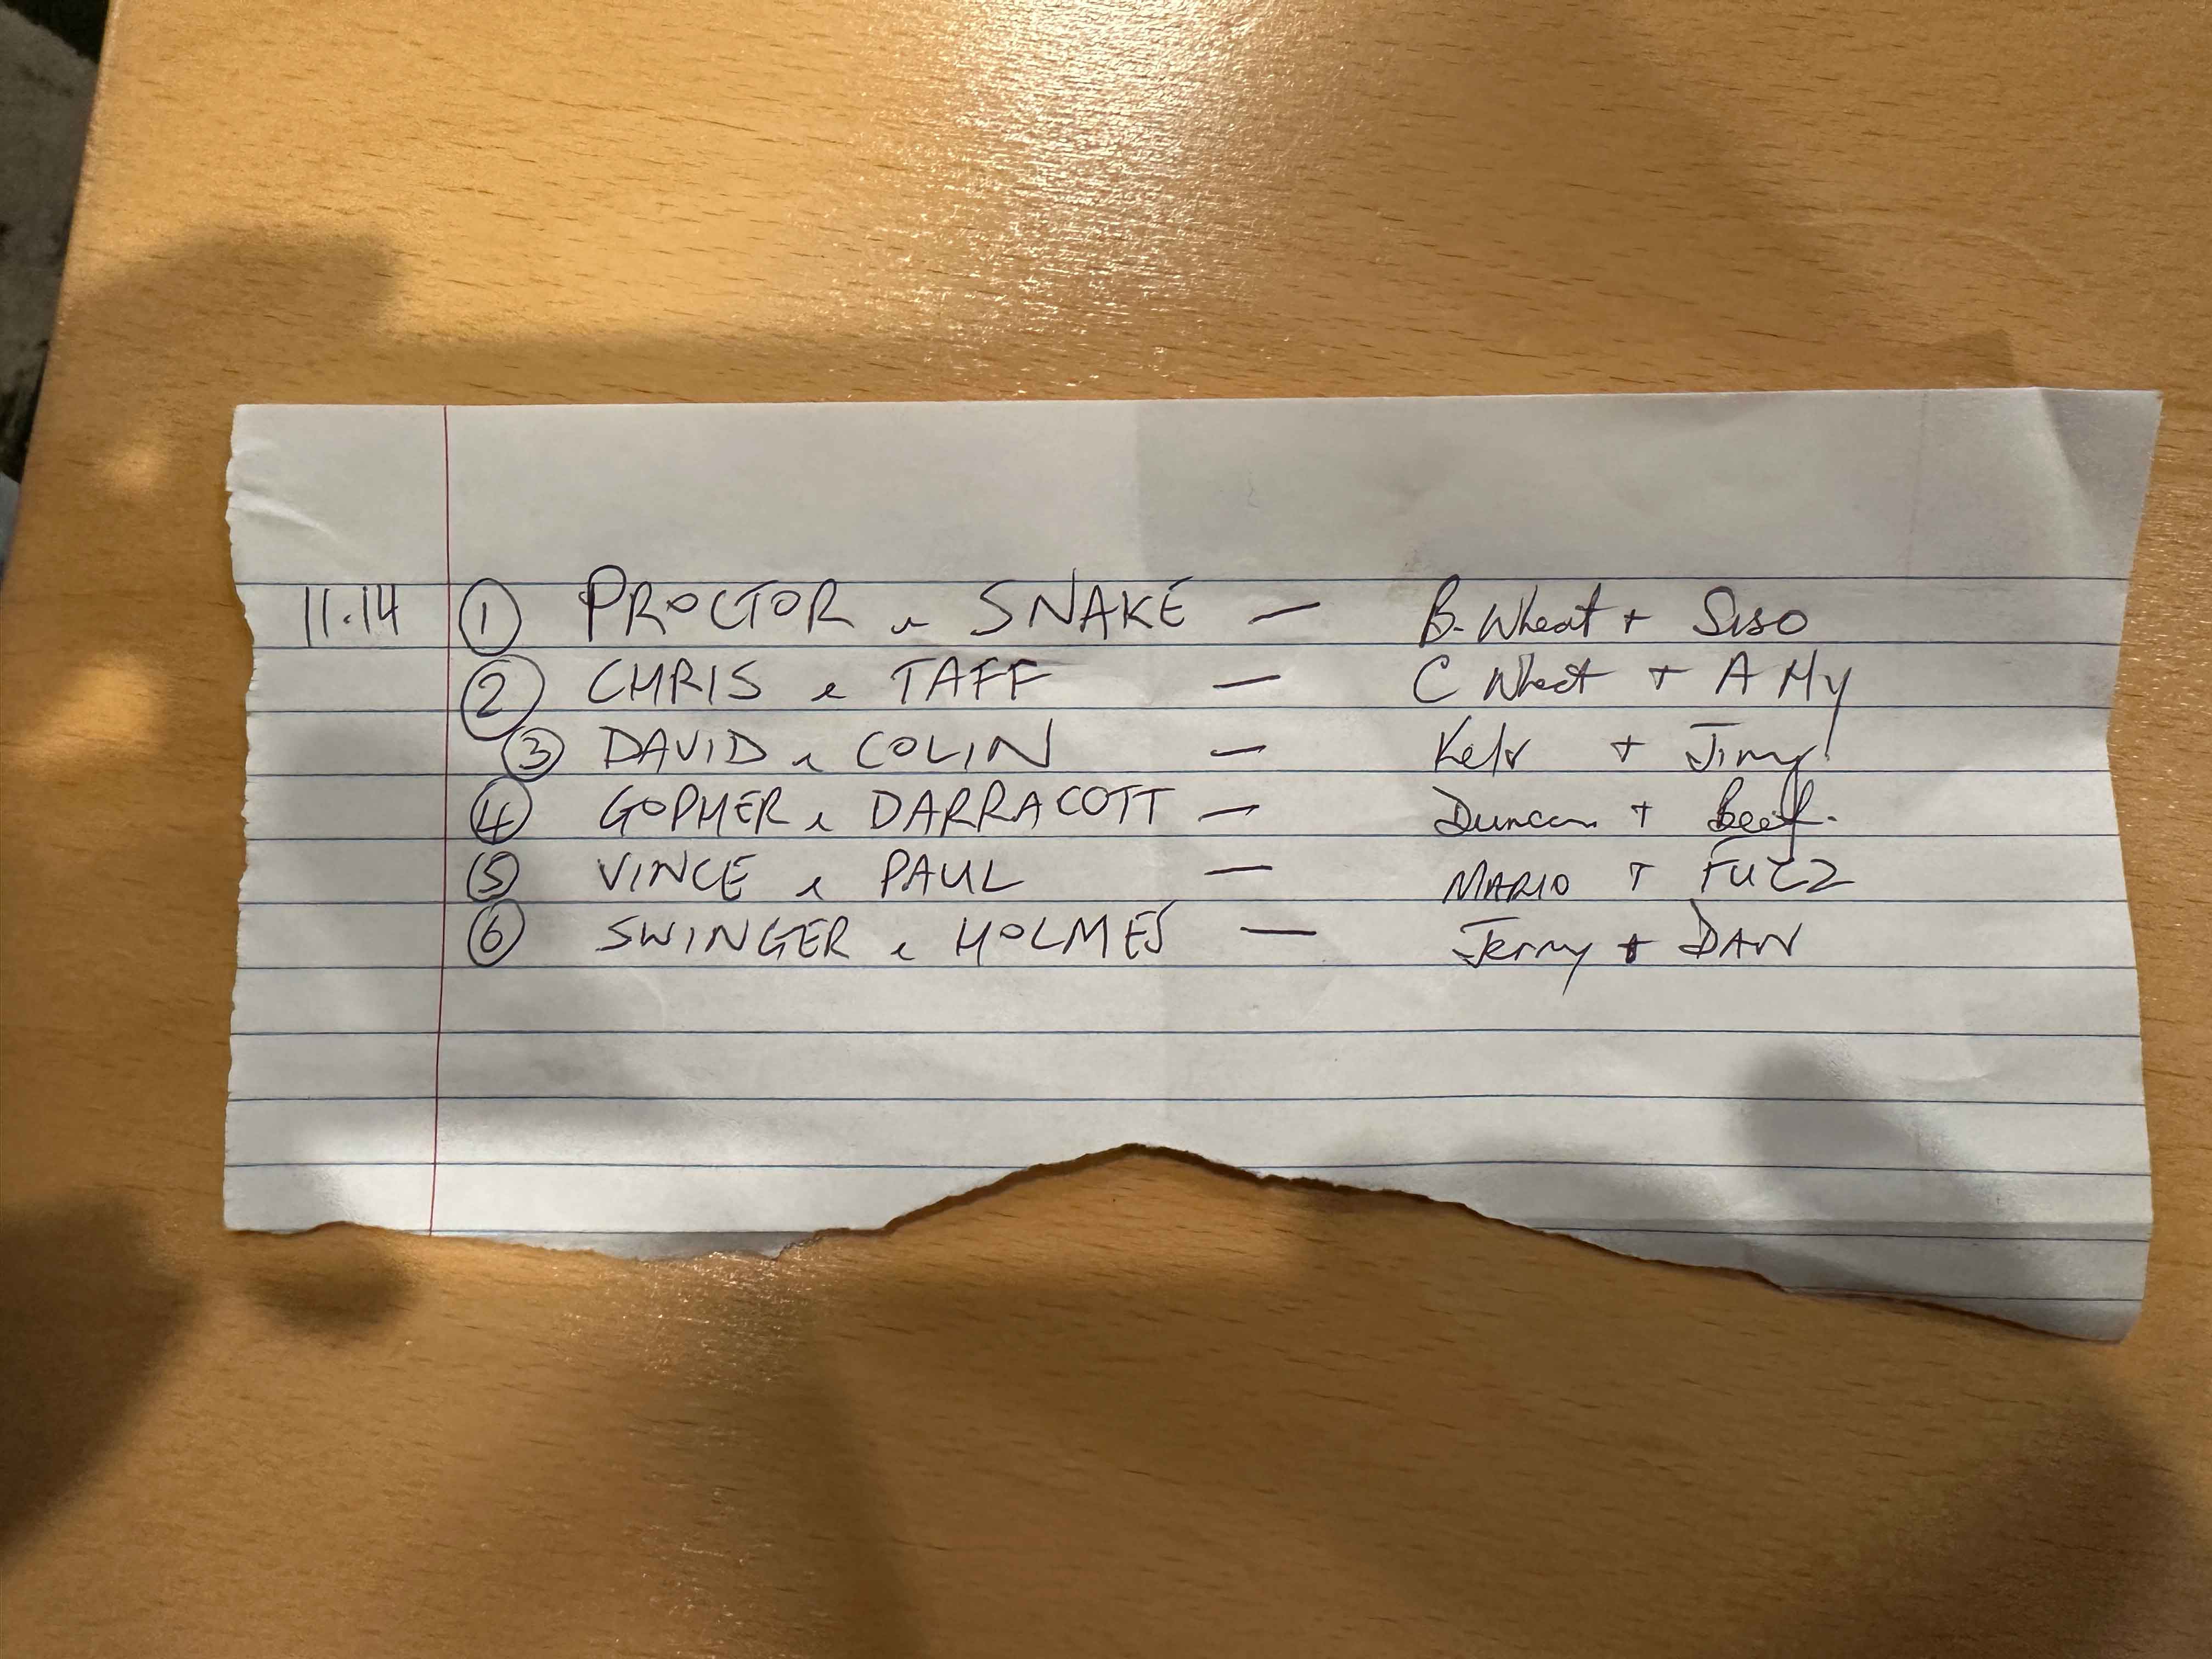 11.14 ① PROCTOR & SNAKE — B. Wheat + Siso
② CHRIS & TAFF — C Wheat + A My
③ DAVID & COLIN — + Jimy
④ GOPHER & DARRACOTT — Duncan + Beef.
⑤ VINCE & PAUL — MARIO + FUZZ
⑥ SWINGER & HOLMES — Jerry + DAN